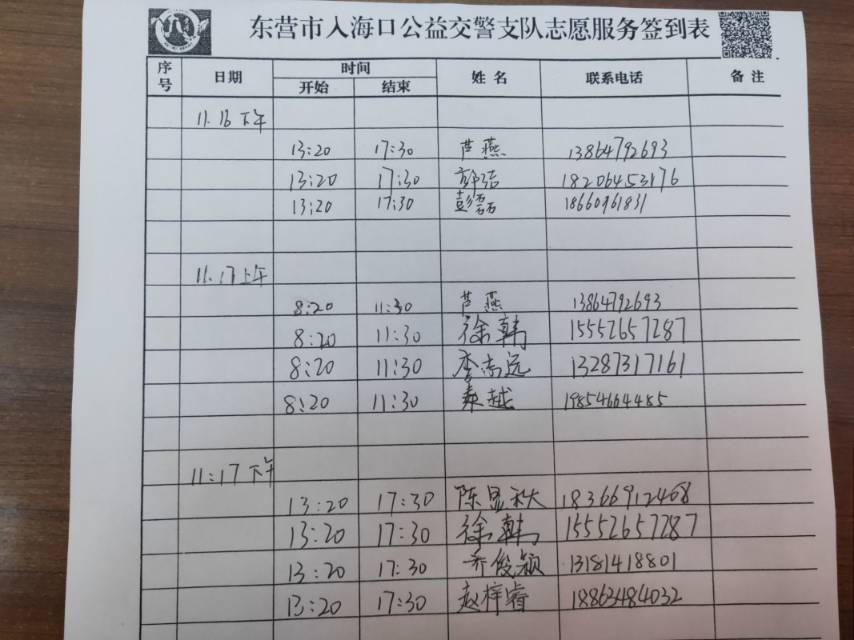 东营市入海口公益交警支队志愿服务签到表
序号 日期 时间 姓名 联系电话 备注
开始 结束
11.16下午
13:20 17:30 芦燕 13864792693
13:20 17:30 18206453176
13:20 17:30 彭磊 18660961831
11.17上午
8:20 11:30 芦燕 13864792693
8:20 11:30 徐韩 15552657287
8:20 11:30 李志远 13287317161
8:20 11:30 秦越 19854664485
11:17下午
13:20 17:30 陈显秋 18366912468
13:20 17:30 徐韩 15552657287
13:20 17:30 乔俊颖 13181418801
13:20 17:30 赵梓睿 18863484032